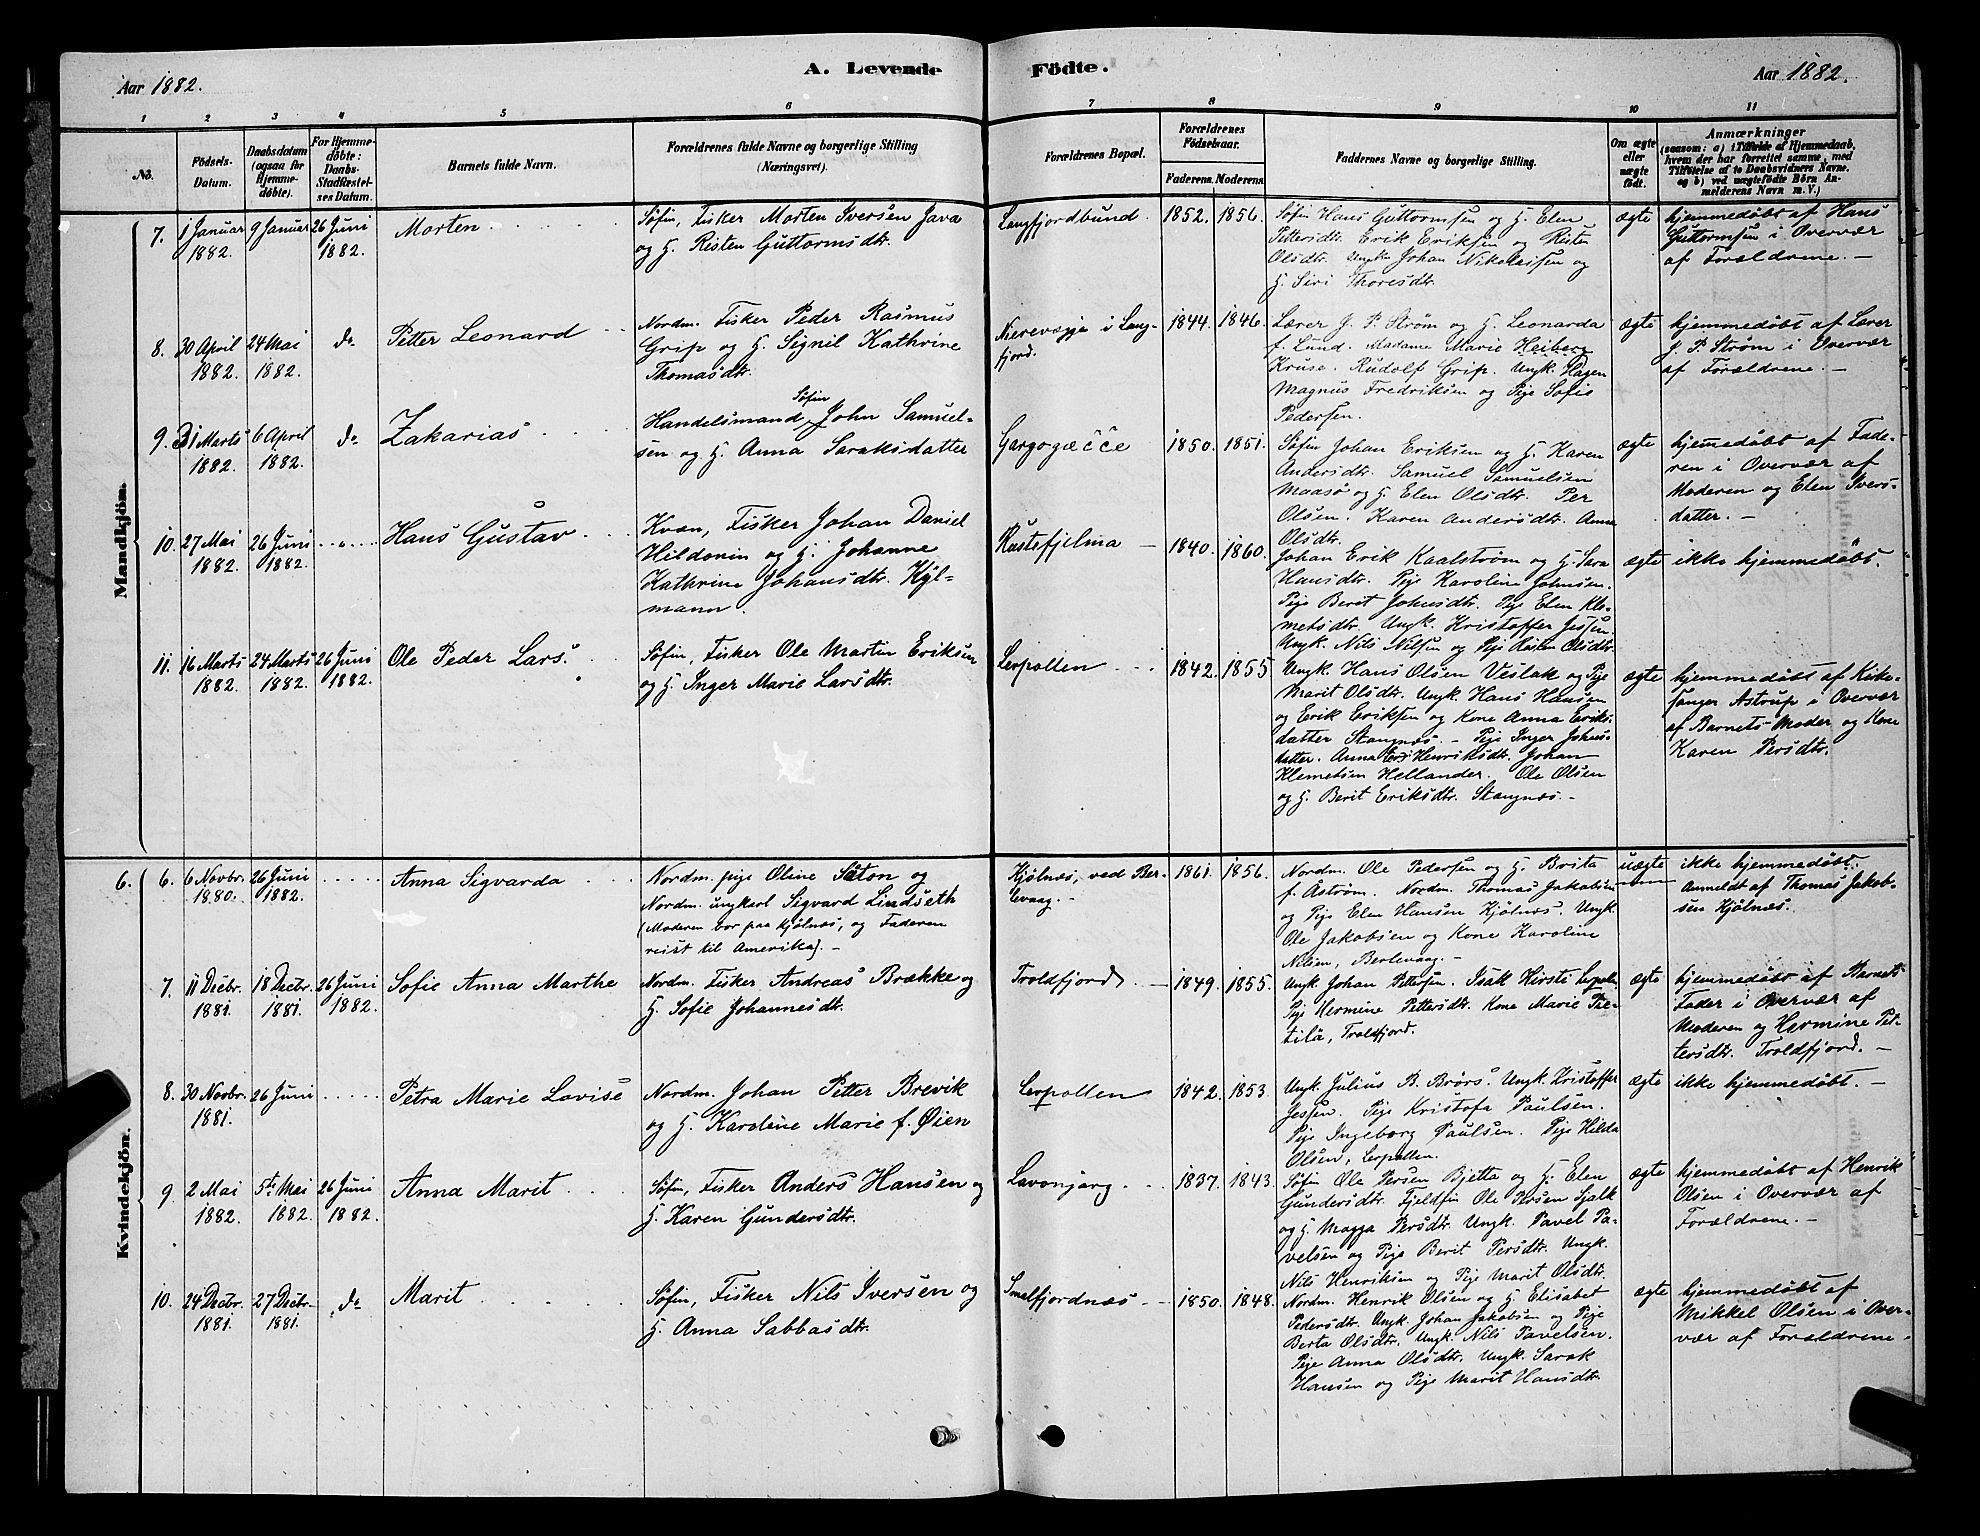 Aar 1882.
A. Levende Födte.
Aar 1882.
1 2 3 4 5 6 7 8 9 10 11
No.
Födsels-Datum.
Daabsdatum (ogsaa for Hjemmedöbte).
For Hjemmedöbte: Daabs-Stadfæstelses Datum.
Barnets fulde Navn.
Forældrenes fulde Navne og borgerlige Stilling (Næringsvei).
Forældrenes Bopæl.
Forældrenes Födselsaar.
Faderens. Moderens.
Faddernes Navne og borgerlige Stilling.
Om ægte eller uægte födt.
Anmærkninger
(saasom: a) i Tilfælde af Hjemmedaab, hvem der har forrettet samme, med Tilföielse af to Daabsvidners Navne. og b) ved uægtefödte Börn Anmelderens Navn m. V.)
Mandkjön.
7. 1 Januar 1882. 9 Januar 26 Juni 1882. Morten
Søfin, Fisker Morten Iversen Java
og H. Risten Guttormsdtr.
Langfjordbund. 1852. 1856.
Søfin Hans Guttormsen og H. Elen
Pettersdtr. Erik Eriksen og Risten
Olsdtr. Ungk. Johan Nikolaisen og
H. Siri Thoresdtr.
ægte
hjemmedøbt af Hans
Guttormsen i Overvær
af Forældrene. -
8. 30 April 1882. 24 Mai 1882. do Petter Leonard
Nordm. Fisker Peder Rasmus
Grip og H. Signil Kathrine
Thomasdtr.
i Langfjord. 1844. 1846.
Lærer J. P. Strøm og H. Leonarda
f. Lund. Madame Marie Heiberg
Kruse. Rudolf Grip. Ungk. Hagen
Magnus Fredriksen og Pige Sofie
Pedersen.
ægte
hjemmedøbt af Lærer
J. P. Strøm i Overvær
af Forældrene. -
9. 31 Marts 1882. 6 April 1882. do Zakarias
Handelsmand, Søfin John Samuel-
sen og H. Anna Saraksdatter
Gargogæčče 1850. 1851.
Søfin Johan Eriksen og H. Karen
Andersdtr. Samuel Samuelsen
Maasø og H. Elen Olsdtr. Per
Olsen. Karen Andersdtr. Anna
Olsdtr.
ægte
hjemmedøbt af Fade-
ren i Overvær af
Moderen og Elen Ivers-
datter. -
10. 27 Mai 1882. 26 Juni 1882. Hans Gustav
Kvæn, Fisker Johan Daniel
Hildonin og H. Johanne
Kathrine Johansdtr. Kyl-
mann.
Rustefjelma 1840. 1860.
Johan Erik Kaalstrøm og H. Sara
Hansdtr. Pige Karoline Johnsen.
Pige Berit Johnsdtr. Pige Elen Kle-
metsdtr. Ungk. Kristoffer Jessen.
Ungk. Nils Nilsen og Pige Risten Olsdtr.
ægte
ikke hjemmedøbt.
11. 16 Marts 1882. 24 Marts 1882. 26 Juni 1882. Ole Peder Lars.
Søfin, Fisker Ole Martin Eriksen
og H. Inger Marie Larsdtr.
Lerpollen 1842. 1855
Ungk. Hans Olsen Veslak og Pige
Marit Olsdtr. Ungk. Hans Hansen
og Erik Eriksen og Kone Anna Eriks-
datter Stangnæs. - Pige Inger Johns-
datter. Anna Henriksdtr. Johan
Klemetsen Hellander. Ole Olsen
og H. Berit Eriksdtr. Stangnæs. -
ægte
hjemmedøbt af Kirke-
sanger Astrup i Overvær
af Barnets Moder og Kone
Karen Persdtr.
Kvindekjön.
6. 6. 6 Novbr. 1880. 26 Juni 1882. Anna Sigvarda
Nordm. pige Oline Säton og
Nordm. ungkarl Sigvard Lindseth
(Moderen bor paa Kjølnæs, og Faderen
reist til Amerika). -
Kjølnæs, ved Ber-
levaag. - 1861. 1856.
Nordm. Ole Pedersen og H. Brita
f. Åstrøm. Nordm. Thomas Jakobsen
og Pige Elen Hansen Kjølnæs. Ungk.
Ole Jakobsen og Kone Karoline
Nilsen, Berlevaag. -
uægte
ikke hjemmedøbt.
Anmeldt af Thomas Jakob-
sen Kjølnæs.
7. 11 Decbr. 1881. 18 Decbr. 1881. 26 Juni 1882. Sofie Anna Marthe
Nordm. Fisker Andreas Brække og
H. Sofie Johannesdtr.
Troldfjord. - 1849. 1855.
Ungk. Johan Pettersen. Isak Hirsti Lerpollen,
Pige Hermine Pettersdtr. Kone Marie Pie-
tilä, Troldfjord.
ægte
hjemmedøbt af Barnets
Fader i Overvær af
Moderen og Hermine Pet-
tersdtr. Troldfjord. -
8. 30 Novbr. 1881. 26 Juni Petra Marie Lovise
Nordm. Johan Petter Brevik
og H. Karoline Marie f. Øien
Lerpollen 1842. 1853.
Ungk. Julius B. Brørs. Ungk. Kristoffer
Jessen. Pige Kristofa Paulsen.
Pige Ingeborg Paulsen. Pige Hilda
Olsen, Lerpollen.
ægte
ikke hjemmedøbt. -
9. 2 Mai 1882. 5te Mai 1882. 26 Juni 1882. Anna Marit
Søfin, Fisker Anders Hansen og
H. Karen Gundersdtr.
Lavonjarg. 1837. 1843.
Søfin Ole Persen Bjetta og H. Elen
Gundersdtr. Fjeldfin Ole Persen
og H. Magga Persdtr. Ungk. Pavel Pa-
velsen og Pige Berit Persdtr. Ungk.
Nils Henriksen og Pige Marit Olsdtr.
ægte
hjemmedøbt af Henrik
Olsen i Overvær af
Forældrene. -
10. 24 Decbr. 1881. 27 Decbr. 1881. do Marit
Søfin, Fisker Nils Iversen og
H. Anna Sabbasdtr.
Smalfjordnæs 1850. 1848.
Nordm. Henrik Olsen og H. Elisabet
Pedersdtr. Ungk. Johan Jakobsen og Pige
Berta Olsdtr. Ungk. Nils Pavelsen.
Pige Anna Olsdtr. Ungk. Sarak
Hansen og Pige Marit Hansdtr.
ægte
hjemmedøbt af
Mikkel Olsen i Over-
vær af Forældrene.